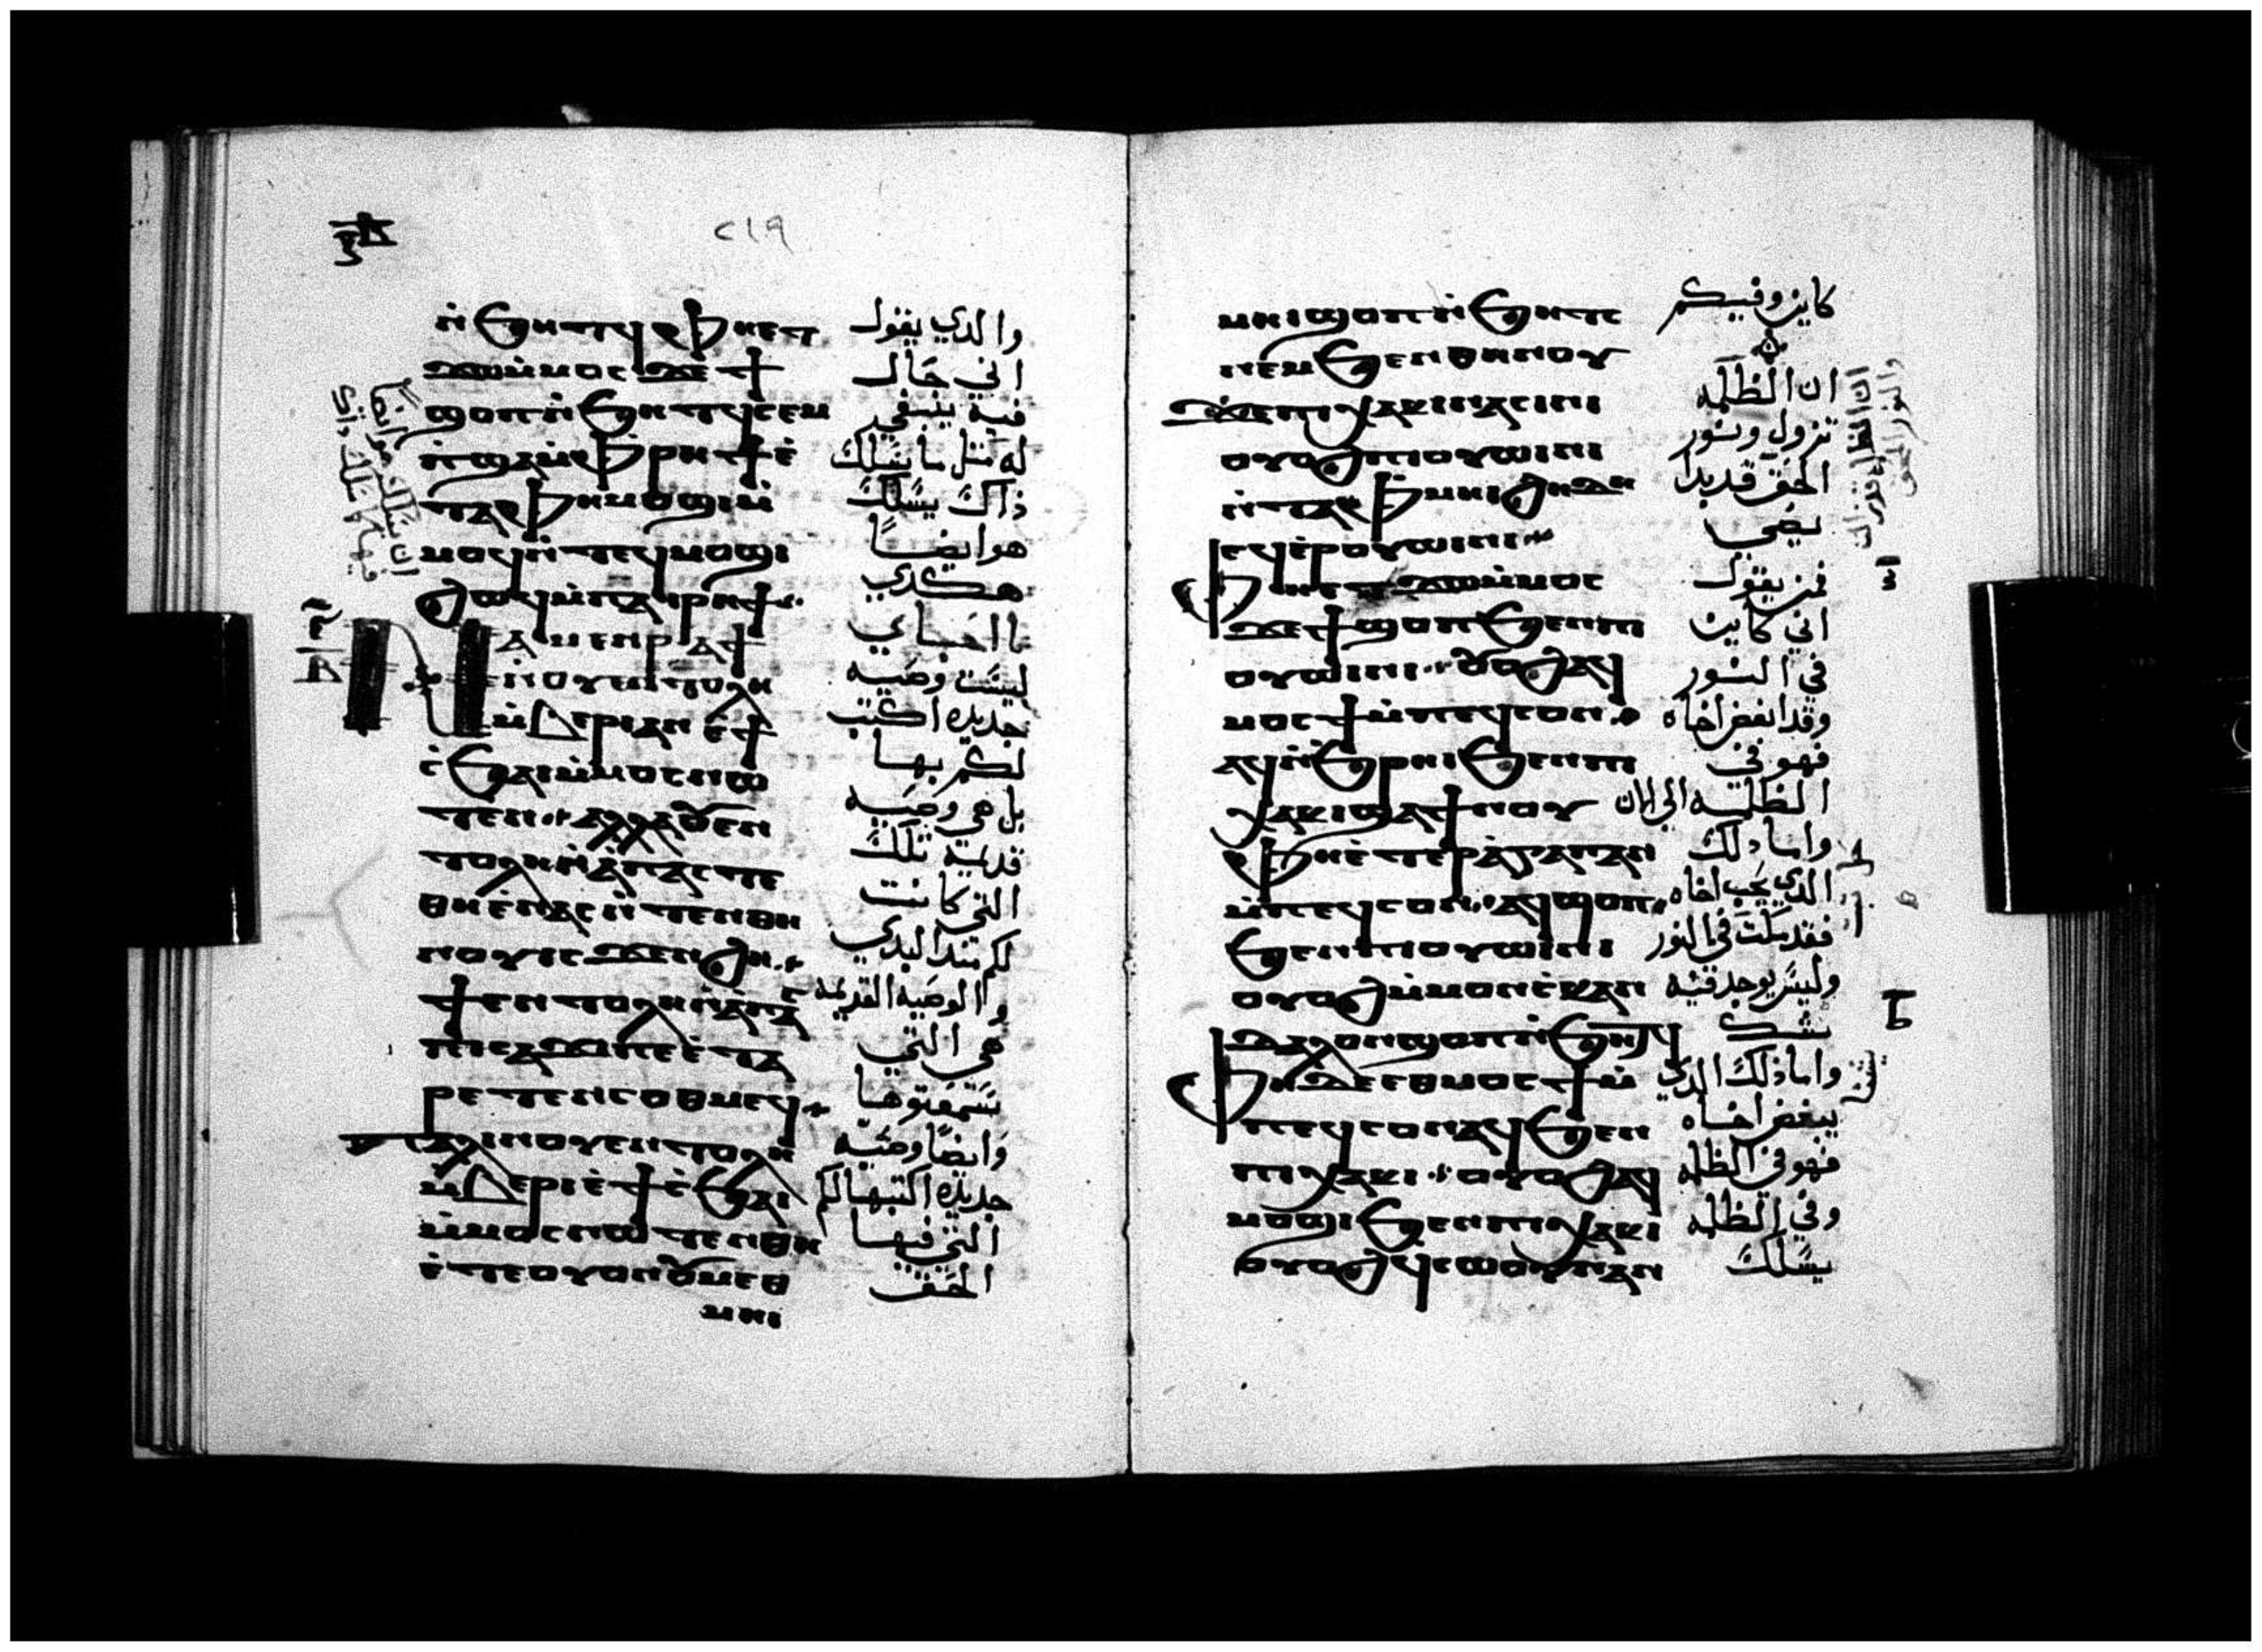 ⲛ̀ϧⲏⲧϥ ⲫⲏⲉⲧ
ϫⲱⲙ̀ⲙⲟⲥ ϫⲉ ϯ
ϣⲟⲡ ⲛ̀ϧⲏⲧϥ ⲥⲉⲙ
ⲡ̀ϣⲁ ⲙ̀ⲫⲣⲏϯ ⲉ̀
ⲧⲁ ⲫⲏ ⲙⲟϣⲓ ⲙ̀
ⲙⲟϥ ⲛ̀ⲧⲉϥⲙⲟϣⲓ
ϩⲱϥ ⲙ̀ⲡⲁⲓⲣⲏϯ
ⲛⲁⲙⲉⲛⲣⲁϯ
ⲛⲟⲩⲉⲛⲧⲟⲗⲏ
ⲙ̀ⲃⲉⲣⲓ ⲁⲛ ⲉ̀ϯ
ⲥ̀ϧⲁⲓ ⲙ̀ⲙⲟⲥ ⲛⲱ
ⲧⲉⲛ ⲁⲗⲗⲁ ⲟⲩⲉⲛ
ⲧⲟⲗⲏ ⲛ̀ⲁ̀ⲡⲁⲥ ⲧⲉ
ⲑⲏ ⲉ̀ⲛⲁⲥⲛ̀ⲧⲉⲛ ⲑⲏ
ⲛⲟⲩ ⲓⲥϫⲉⲛ ϩⲏ
ϯⲉⲛⲧⲟⲗⲏ ⲛ̀ⲁ̀ⲡⲁⲥ
ⲡⲓⲥⲁϫⲓ ⲡⲉ ⲉ̀ⲧⲁ
ⲣⲉⲧⲉⲛⲥⲟⲑⲙⲉϥ
ⲡⲁⲗⲓⲛ ⲟⲩⲉⲛⲧⲟⲗⲏ
ⲙ̀ⲃⲉⲣⲓ ⲉ̀ϯⲥ̀ϧⲁⲓ
ⲙ̀ⲙⲟⲥ ⲛⲱⲧⲉⲛ ⲑⲏ
ⲉ̀ⲧⲉ ⲟⲩⲟⲛ ⲟⲩⲑⲙⲉ
ⲙⲏⲓ
والدي يقول
اني حال
فيه ينبغي
له مثل ما يسلك
ذاك يسلك
هو ايضاً
هكدي
يا احباي
ليست وصيه
جديده اكتب
لكم بها
بل هي وصيه
قديمة تلك
التي كانت
لكم مند البدي
والوصيه القديمة
هي التي
سمعتوها
وايضاً وصيه
جديده اكتبها لكم
التي فيها
الحق
٢١٩
ⲙⲏⲓ ϣⲟⲡ ⲛ̀ϧⲏⲧϥ
ⲛⲉⲙ ϧⲉⲛ ⲑⲏⲛⲟⲩ
ϫⲉ ⲡⲓⲭⲁⲕⲓ ⲛⲁⲥⲓⲛⲓ
ⲟⲩⲟϩ ⲡⲓⲟⲩⲱⲓⲛⲓ
ⲛ̀ⲧⲁⲫⲙⲏⲓ ϩⲏⲇⲏ
ϥⲉⲣⲟⲩⲱⲓⲛⲓ
ⲫⲏⲉⲧϫⲱⲙ̀ⲙⲟⲥ
ϫⲉ ϯϣⲟⲡ ϧⲉⲛ ⲡⲓ
ⲟⲩⲱⲓⲛⲓ ⲟⲩⲟϩ ϥ
ⲙⲟⲥϯ ⲙ̀ⲡⲉϥⲥⲟⲛ
ⲁϥⲛ̀ϧⲣⲏⲓ ϧⲉⲛ ⲡⲓ
ⲭⲁⲕⲓ ϣⲁ ϯⲛⲟⲩ
ⲫⲏ ⲉ̀ⲧⲉⲣⲁ̀ⲅⲁⲡⲁⲛ
ⲙ̀ⲡⲉϥⲥⲟⲛ ⲁϥϣⲟⲡ
ϧⲉⲛ ⲡⲓⲟⲩⲱⲓⲛⲓ
ⲟⲩⲟϩ ⲙ̀ⲙⲟⲛ ⲥ̀ⲕⲁⲛ
ⲇⲁⲗⲟⲛ ϣⲟⲡ ⲛ̀ϧⲏⲧϥ
ⲫⲏ ⲇⲉ ⲉⲑⲙⲟⲥϯ ⲙ̀
ⲡⲉϥⲥⲟⲛ ⲁϥϧⲉⲛ
ⲡⲓⲭⲁⲕⲓ ⲟⲩⲟϩ ⲁϥ
ⲙⲟϣⲓ ϧⲉⲛ ⲡⲓⲭⲁⲕⲓ
ⲟⲩⲟϩ ϥⲥⲱⲟⲩⲛ ⲁⲛ
كاين وفيكم
ان الظلمه
تزول ونور
الحق قد بدا
يضي
فمن يقول
اني كاين
في النور
وقد ابغض اخاه
فهو في
الظلمه الي الان
واما دلك
الدي يحب اخاه
فقد سكت في النور
وليس يوجد فيه
شك
واما ذلك الدي
يبغض اخاه
فهو في الظلمه
وفي الظلمه
يسلك